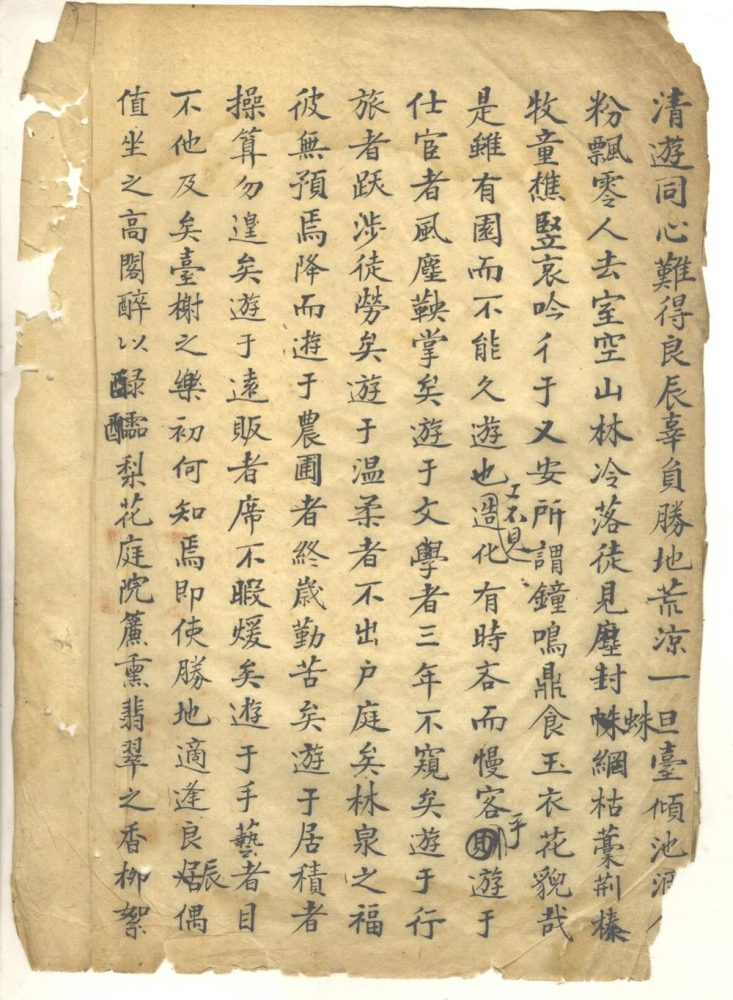 清遊同心難得良辰辜負勝地荒涼一旦臺傾池涸
粉飄零人去室空山林冷落徒見塵封蛛網枯藁荊榛
牧童樵豎哀吟彳于又安所謂鐘鳴鼎食玉衣花貌哉
是雖有園而不能久遊也造化工不見有時吝而慢客乎則遊于
仕官者風塵鞅掌矣遊于文學者三年不窺矣遊于行
旅者跋涉徒勞矣遊于温柔者不出户庭矣林泉之福
彼無預焉降而遊于農圃者終歲勤苦矣遊于居積者
操算勿遑矣遊于遠販者席不暇煖矣遊于手藝者目
不他及矣臺榭之樂初何知焉即使勝地適逢良辰偶
值坐之高閣醉以醁醽梨花庭院簾熏翡翠之香柳絮